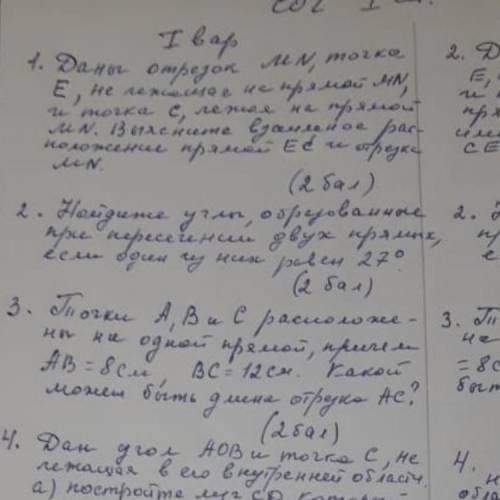 СОГ I
I вар
1. Даны отрезок MN, точка
E, не лежащая на прямой MN,
и точка C, лежая на прямой
MN. Выясните взаимное рас-
положение прямой EC и отрезка
MN.
(2 бал)
2. Найдите углы, образованные
при пересечении двух прямых,
если один из них равен 27°
(2 бал)
3. Точки A, B и C расположе-
ны на одной прямой, причем
AB = 8 см, BC = 12 см. Какой
может быть длина отрезка AC?
(2 бал)
4. Дан угол AOB и точка C, не
лежащая в его внутренней област.
а) постройте луч
2. Д
E,
и
пря
име
CE
2.
пр
е
3. Т
на
= 8с
быт
4.